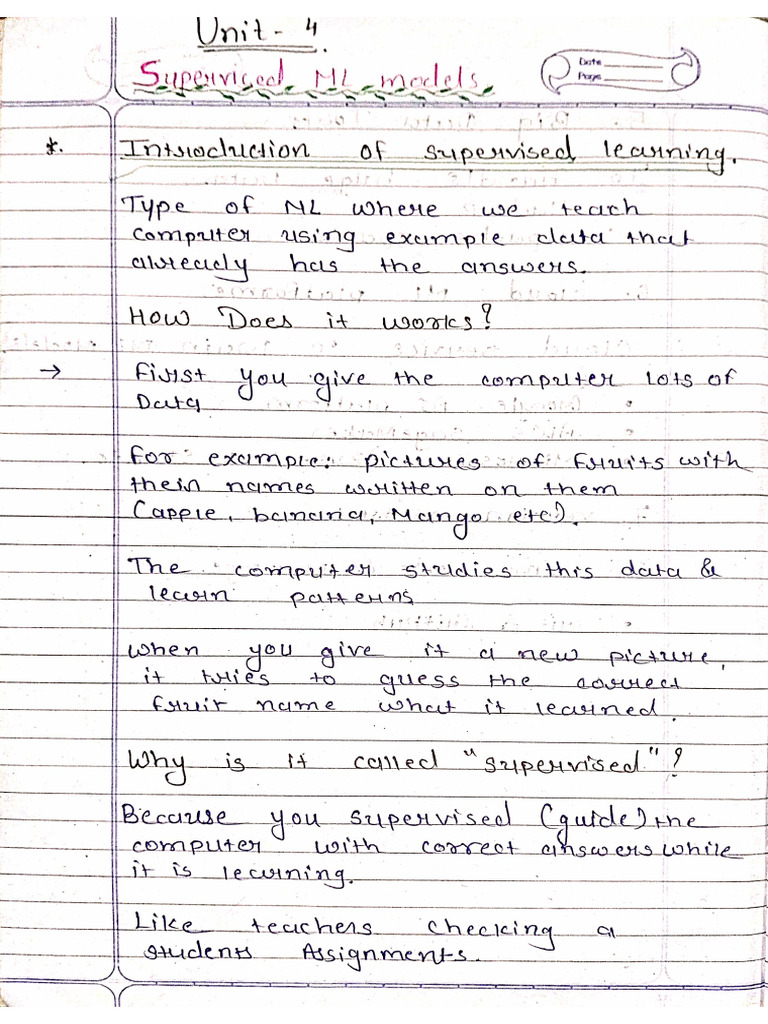 Unit - 4.
Supervised ML models.
Date
Page
*. Introduction of supervised learning.
Type of ML where we teach
computer using example data that
already has the answers.
How Does it works?
→ First you give the computer lots of
Data
For example: pictures of fruits with
thein names written on them
(apple, banana, Mango etc).
The computer studies this data &
learn patterns
when you give it a new picture,
it tries to guess the correct
fruit name what it learned.
Why is it called "supervised"?
Because you supervised (guide) the
computer with correct answers while
it is learning.
Like teachers checking a
students Assignments.